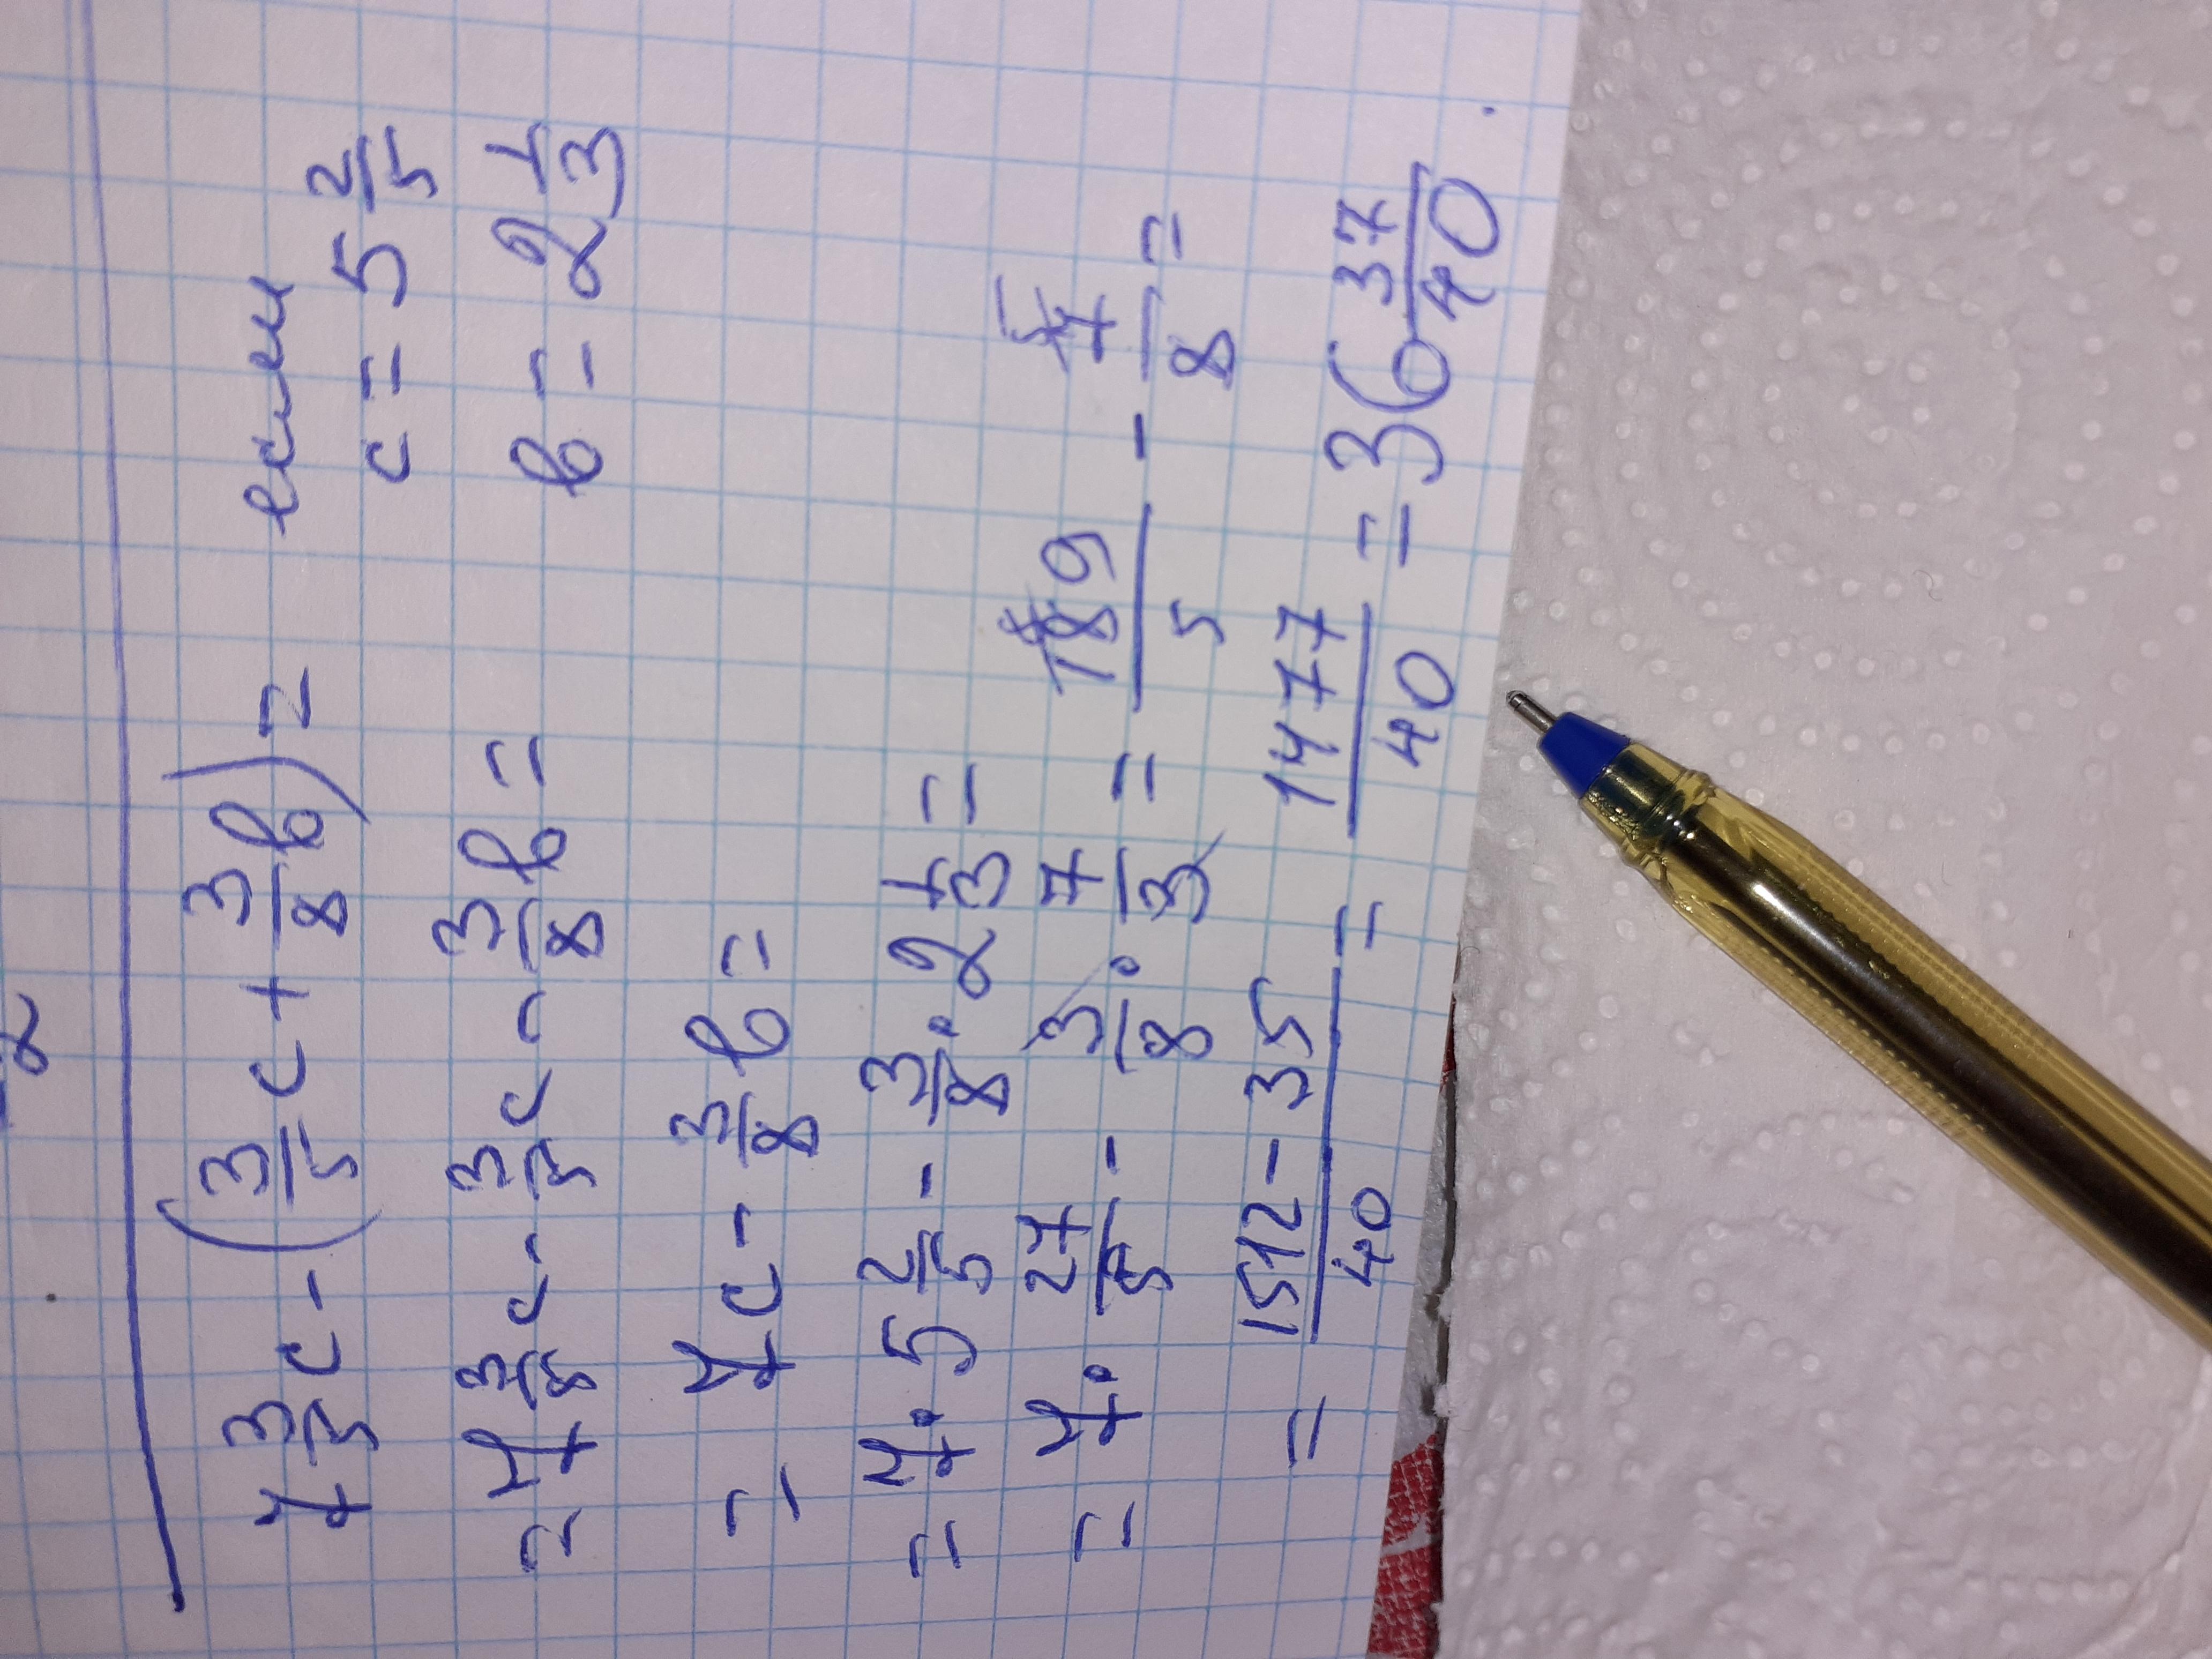 7 3/5 c - (3/5 c + 3/8 b) = если
c = 5 2/5
= 7 3/8 c - 3/5 c - 3/8 b = b = 2 1/3
= 7c - 3/8 b =
= 7 · 5 2/5 - 3/8 · 2 1/3 =
= 7 · 27/5 - 3/8 · 7/3 = 189/5 - 7/8 =
= (1512 - 35)/40 = 1477/40 = 36 37/40 .